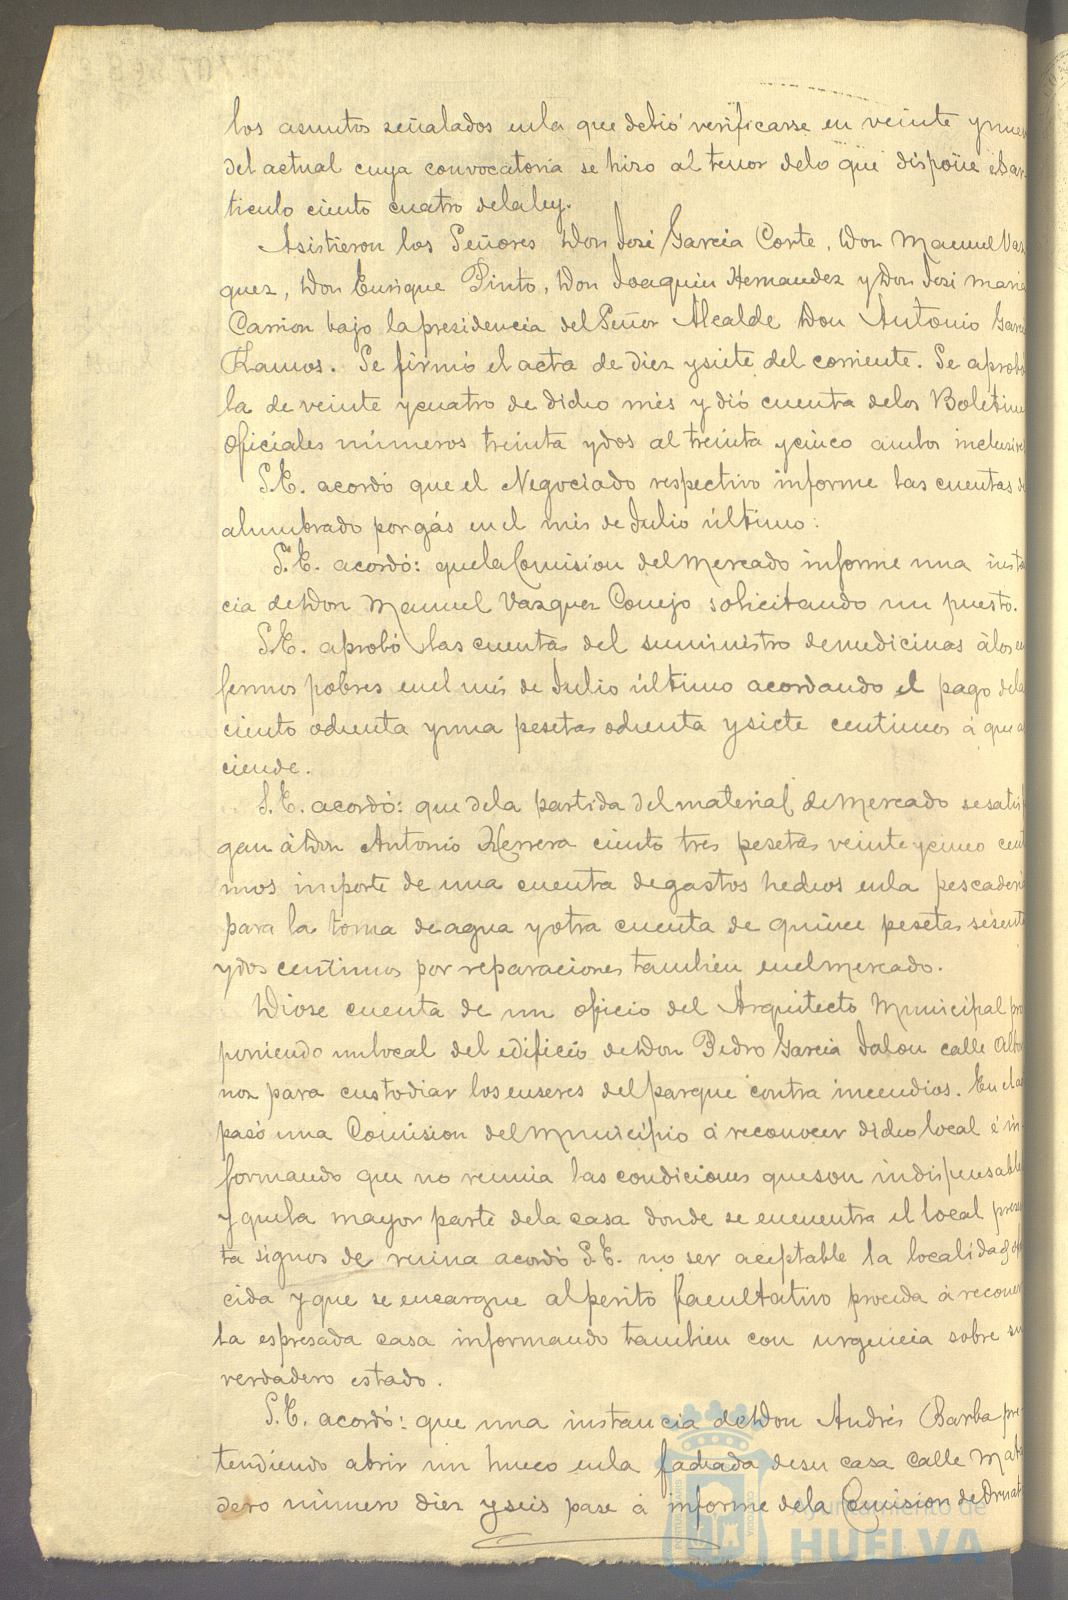 los asuntos señalados en la que debió verificarse en veinte y nuev
del actual cuya convocatoria se hizo al tenor de lo que dispone el ar
tículo ciento cuatro de la ley.
Asistieron los Señores Don José Garcia Corte, Don Manuel Vaz
quez, Don Enrique Pinto, Don Joaquin Hernandez y Don José Maria
Carrion bajo la presidencia del Señor Alcalde Don Antonio Garci
Ramos. Se firmó el acta de diez y siete del corriente. Se aprobó
la de veinte y cuatro de dicho més y dió cuenta de los Boletines
oficiales números treinta y dos al treinta y cinco ambos inclusive
S.E. acordó que el Negociado respectivo informe las cuentas de
alumbrado por gás en el més de Julio último:
S.E. acordó: que la Comision del Mercado informe una insta
cia de Don Manuel Vazquez Conejo solicitando un puesto.
S.E. aprobó las cuentas del suministro de medicinas á los en
fermos pobres en el més de Julio último acordando el pago de la
ciento ochenta y una pesetas ochenta y siete centimos á que a
ciende.
S.E. acordó: que de la partida del material de Mercado se satisf
gan á Don Antonio Herrera ciento tres pesetas veinte y cinco cent
mos importe de una cuenta de gastos hechos en la pescaderi
para la toma de agua y otra cuenta de quince pesetas sesenta
y dos centimos por reparaciones tambien en el mercado.
Diose cuenta de un oficio del Arquitecto Municipal pro
poniendo un local del edificio de Don Pedro Garcia Jalon calle Albor
noz para custodiar los enseres del parque contra incendios. En el a
pasó una Comision del Municipio á reconocer dicho local é in-
formando que no reunia las condiciones que son indispensable
y que la mayor parte de la casa donde se encuentra el local presen
ta signos de ruina acordó S.E. no ser aceptable la localidad ofre
cida y que se encargue al perito facultativo proceda á reconoc
la espresada casa informando tambien con urgencia sobre su
verdadero estado.
S.E. acordó: que una instancia de Don Andrés Barba pre-
tendiendo abrir un hueco en la fachada de su casa calle Mata
dero número diez y seis pase á informe de la Comision de Ornato
Ayuntamiento de
HUELVA